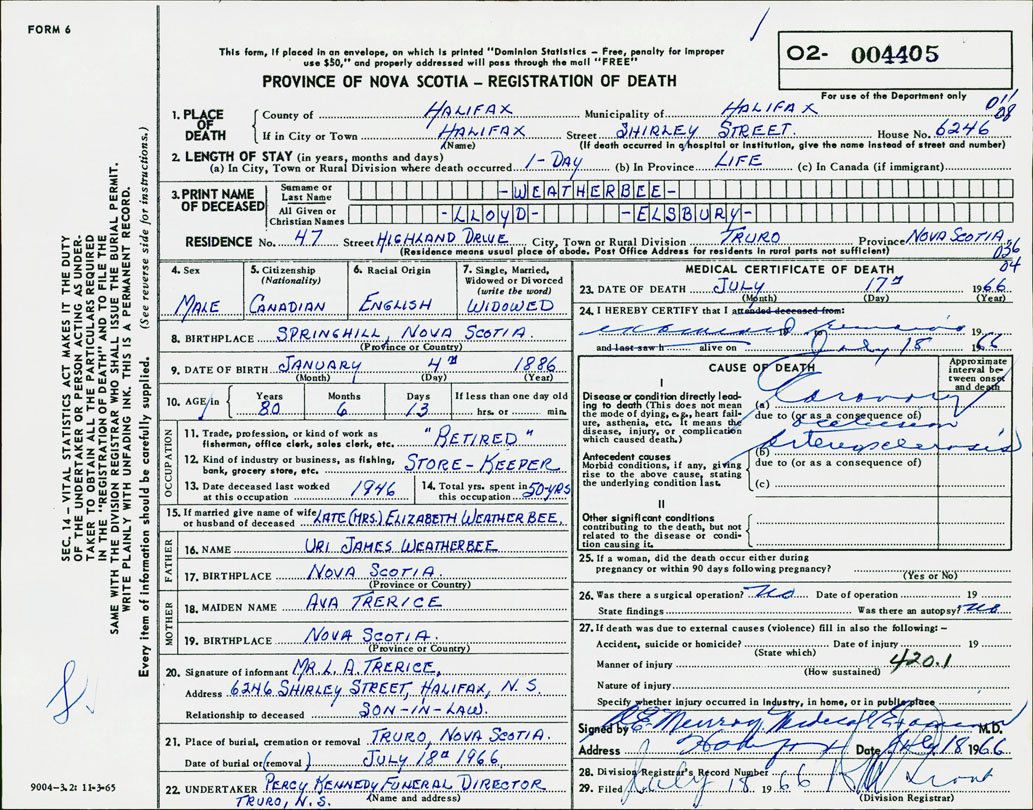 FORM 6
This form, if placed in an envelope, on which is printed "Dominion Statistics – Free, penalty for improper
use $50," and properly addressed will pass through the mail "FREE"
PROVINCE OF NOVA SCOTIA – REGISTRATION OF DEATH
02- 004405
For use of the Department only
011
08
1. PLACE OF DEATH
County of HALIFAX Municipality of HALIFAX
If in City or Town HALIFAX Street SHIRLEY STREET. House No. 6246
(Name) (If death occurred in a hospital or institution, give the name instead of street and number)
2. LENGTH OF STAY (in years, months and days)
(a) In City, Town or Rural Division where death occurred 1-DAY (b) In Province LIFE (c) In Canada (if immigrant)
3. PRINT NAME OF DECEASED
Surname or Last Name -WEATHERBEE-
All Given or Christian Names -LLOYD- -ELSBURY-
RESIDENCE No. 47 Street HIGHLAND DRIVE City, Town or Rural Division TRURO Province NOVA SCOTIA.
(Residence means usual place of abode. Post Office Address for residents in rural parts not sufficient)
036
04
4. Sex
MALE
5. Citizenship (Nationality)
CANADIAN
6. Racial Origin
ENGLISH
7. Single, Married, Widowed or Divorced (write the word)
WIDOWED
8. BIRTHPLACE SPRINGHILL, NOVA SCOTIA.
(Province or Country)
9. DATE OF BIRTH JANUARY 4TH 1886
(Month) (Day) (Year)
10. AGE in Years Months Days If less than one day old
80 6 13 hrs. or min.
OCCUPATION
11. Trade, profession or kind of work as
fisherman, office clerk, sales clerk, etc. "RETIRED"
12. Kind of industry or business, as fishing,
bank, grocery store, etc. STORE-KEEPER
13. Date deceased last worked
at this occupation 1946
14. Total yrs. spent in
this occupation 50-YRS
15. If married give name of wife
or husband of deceased LATE (MRS.) ELIZABETH WEATHERBEE.
FATHER
16. NAME URI JAMES WEATHERBEE
17. BIRTHPLACE NOVA SCOTIA.
(Province or Country)
MOTHER
18. MAIDEN NAME AVA TRERICE
19. BIRTHPLACE NOVA SCOTIA.
(Province or Country)
20. Signature of informant MR. L. A. TRERICE,
Address 6246 SHIRLEY STREET, HALIFAX, N. S.
Relationship to deceased SON-IN-LAW.
21. Place of burial, cremation or removal TRURO, NOVA SCOTIA.
Date of burial or (removal) JULY 18TH 1966,
22. UNDERTAKER PERCY KENNEDY FUNERAL DIRECTOR
TRURO, N.S. (Name and address)
MEDICAL CERTIFICATE OF DEATH
23. DATE OF DEATH JULY 17TH 1966
(Month) (Day) (Year)
24. I HEREBY CERTIFY that I attended deceased from:
examined 19 to remains 19
and last saw h alive on July 18 1966
CAUSE OF DEATH
Approximate interval between onset and death
I
Disease or condition directly leading to death (This does not mean the mode of dying, e.g., heart failure, asthenia, etc. It means the disease, injury, or complication which caused death.)
(a) Coronary
due to (or as a consequence of)
occlusion
arteriosclerosis
Antecedent causes
Morbid conditions, if any, giving rise to the above cause, stating the underlying condition last.
(b)
due to (or as a consequence of)
(c)
II
Other significant conditions
contributing to the death, but not related to the disease or condition causing it.
25. If a woman, did the death occur either during
pregnancy or within 90 days following pregnancy?
(Yes or No)
26. Was there a surgical operation? no Date of operation 19
State findings Was there an autopsy? no
27. If death was due to external causes (violence) fill in also the following: –
Accident, suicide or homicide? Date of injury 19
(State which)
Manner of injury 420.1
(How sustained)
Nature of injury
Specify whether injury occurred in industry, in home, or in public place
Signed by Medical Examiner M.D.
Address Halifax Date July 18 1966
28. Division Registrar's Record Number
29. Filed July 18 1966
(Division Registrar)
SEC. 14 – VITAL STATISTICS ACT MAKES IT THE DUTY
OF THE UNDERTAKER OR PERSON ACTING AS UNDER-
TAKER TO OBTAIN ALL THE PARTICULARS REQUIRED
IN THE "REGISTRATION OF DEATH" AND TO FILE THE
SAME WITH THE DIVISION REGISTRAR WHO SHALL ISSUE THE BURIAL PERMIT.
WRITE PLAINLY WITH UNFADING INK. THIS IS A PERMANENT RECORD.
Every item of information should be carefully supplied. (See reverse side for instructions.)
9004–3.2: 11-3-65